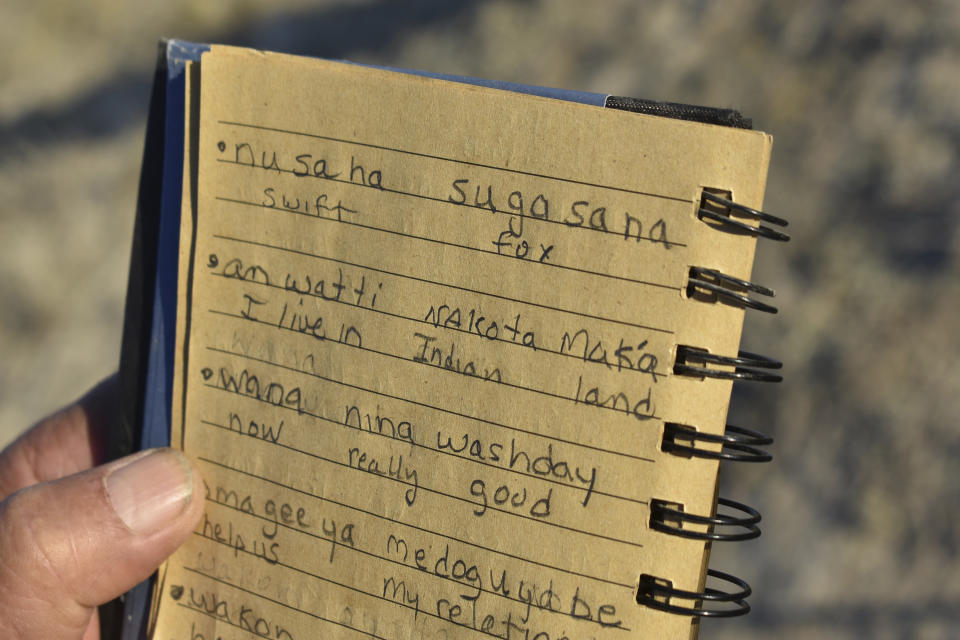 • nusaha sugasana
swift fox
• an watti NAKota Maka
I live in Indian land
• wana nina washday
now really good
magee ya medoguyabe
help us my relation
• wakon